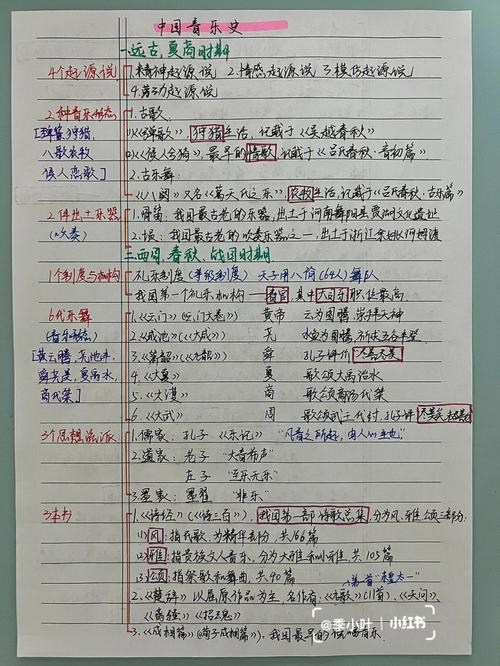 中国音乐史
一.远古,夏商时期
4个起源说
1.精神起源说 2.情感起源说 3.模仿起源说
4.劳动起源说
2种音乐形态
[弹黄狩猎,
八歌农牧
候人恋歌]
1.古歌:
①《弹歌》,狩猎生活,记载于《吴越春秋》
②《候人兮猗》,最早的情歌,记载于《吕氏春秋·音初篇》
2.古乐舞:
《八阕》又名《葛天氏之乐》,农牧生活,记载于《吕氏春秋·古乐篇》
2件出土乐器
(吹奏)
1.骨笛:我国最古老的乐器,出土于河南舞阳县贾湖文化遗址
2.埙:我国最古老的吹奏乐器之一,出土于浙江余姚河姆渡
二.西周,春秋,战国时期
1个制度与机构
礼乐制度(等级制度) 天子用八佾(64人)舞队
我国第一个礼乐机构—春官,其中大司乐职位最高
6代乐舞
(音乐形态)
[黄云腾,尧池丰,
舜关是,夏禹水,
商代桀]
1.《云门》(《云门大卷》) 黄帝 云为图腾,崇拜天神
2.《咸池》(《大咸》) 尧 水鱼为图腾,祈求五谷丰登
3.《箫韶》(《九韶》) 舜 孔子评价"尽善尽美"
4.《大夏》 夏 歌颂大禹治水
5.《大濩》 商 歌颂商汤伐桀
6.《大武》 周 歌颂武王伐纣,孔子评"尽美矣,未尽善也"
3个思想流派
1.儒家:孔子 《乐记》 "凡音之所起,由人心生也"
2.道家:老子 "大音希声"
庄子 "至乐无乐"
3.墨家:墨翟 "非乐"
3本书
1.《诗经》(《诗三百》),我国第一部诗歌总集,分为风,雅,颂三部分
①风:指民歌,为精华部分,共160篇
②雅:指贵族文人音乐,分为大雅和小雅,共105篇
③颂:指祭歌和舞曲,共40篇
2.《楚辞》以屈原作品为主,名作有《九歌》(11首),《天问》,
《离骚》《招魂》
3.《成相篇》(荀子成相篇),我国最早的说唱音乐
@季小叶 | 小红书